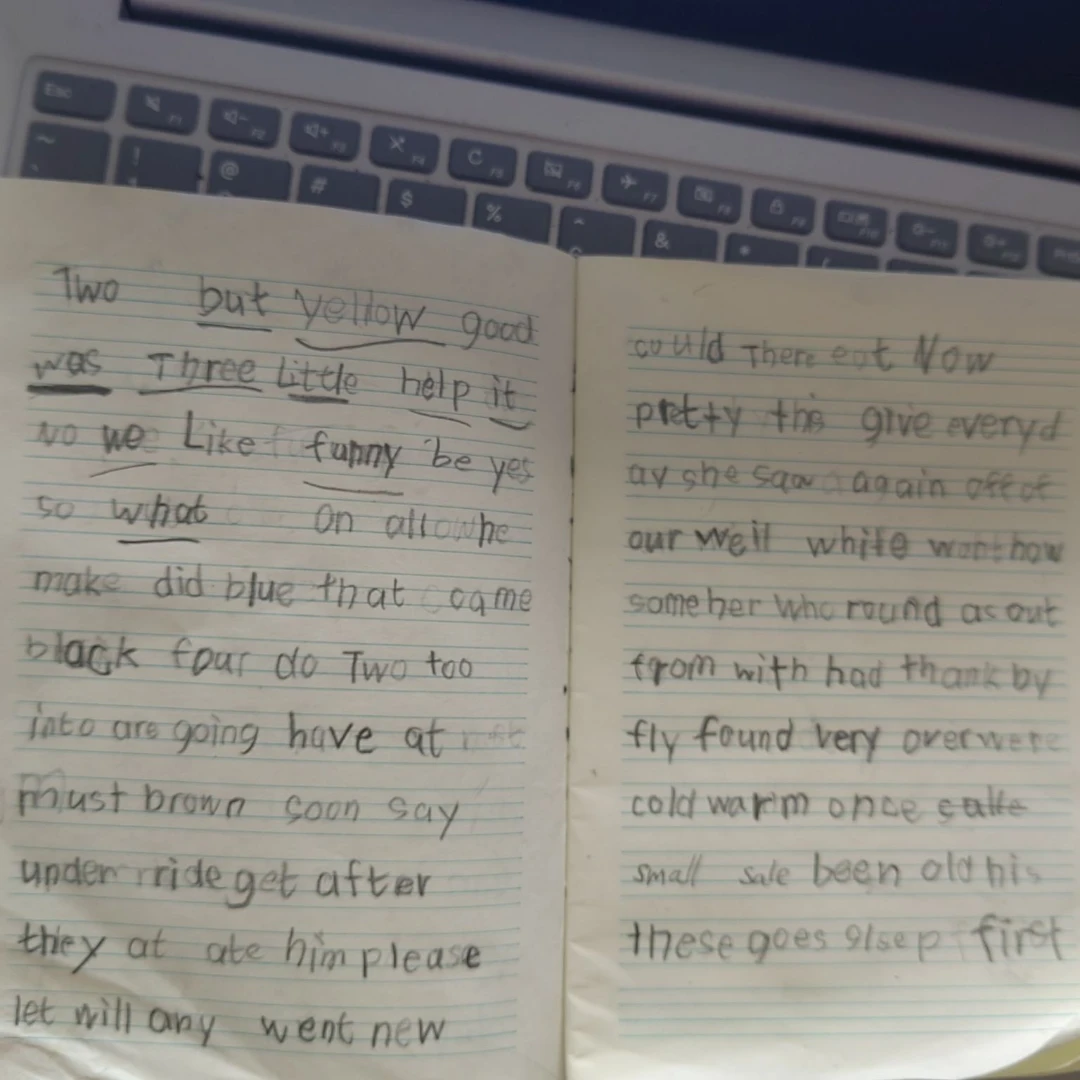 Esc F1 F2 F3 F4 C F5 F6 F7 F8 F9 F10 F11
~ ! @ # $ % ^ & *
Two but yellow good
was Three Little help it
no we Like funny be yes
so what on all owhe
make did blue that came
black four do Two too
into are going have at
must brown soon say
under ride get after
they at ate him please
let will any went new
could There eat Now
pretty this give everyd
ay she saw again off of
our well white want how
some her who round as out
from with had thank by
fly found very over were
cold warm once
small sale been old his
these goes first